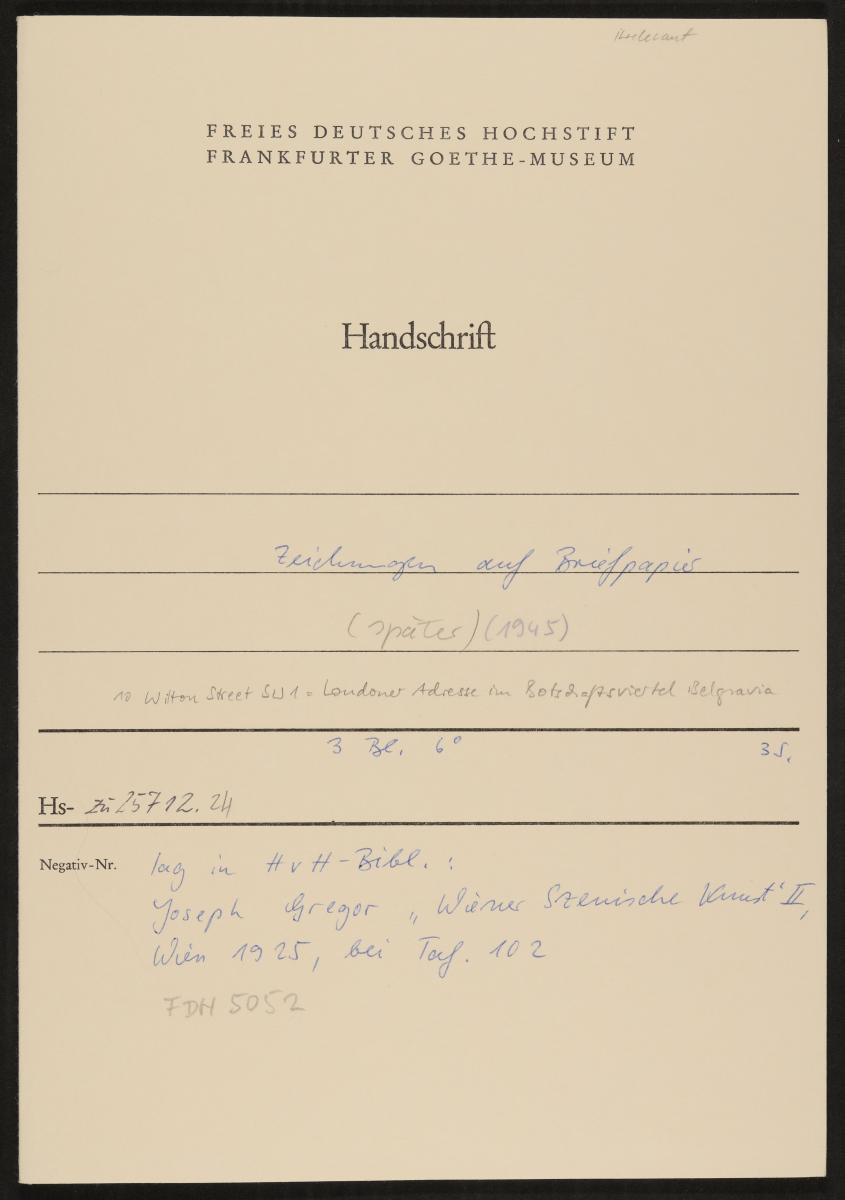 irrelevant
FREIES DEUTSCHES HOCHSTIFT
FRANKFURTER GOETHE-MUSEUM
Handschrift
Zeichnungen auf Briefpapier
(später) (1945)
10 Wilton Street SW1 = Londoner Adresse im Botschaftsviertel Belgravia
3 Bl. 6° 3 S.
Hs- zu 25712.24
Negativ-Nr. lag in HvH-Bibl.:
Joseph Gregor „Wiener Szenische Kunst" II,
Wien 1925, bei Taf. 102
FDH 5052